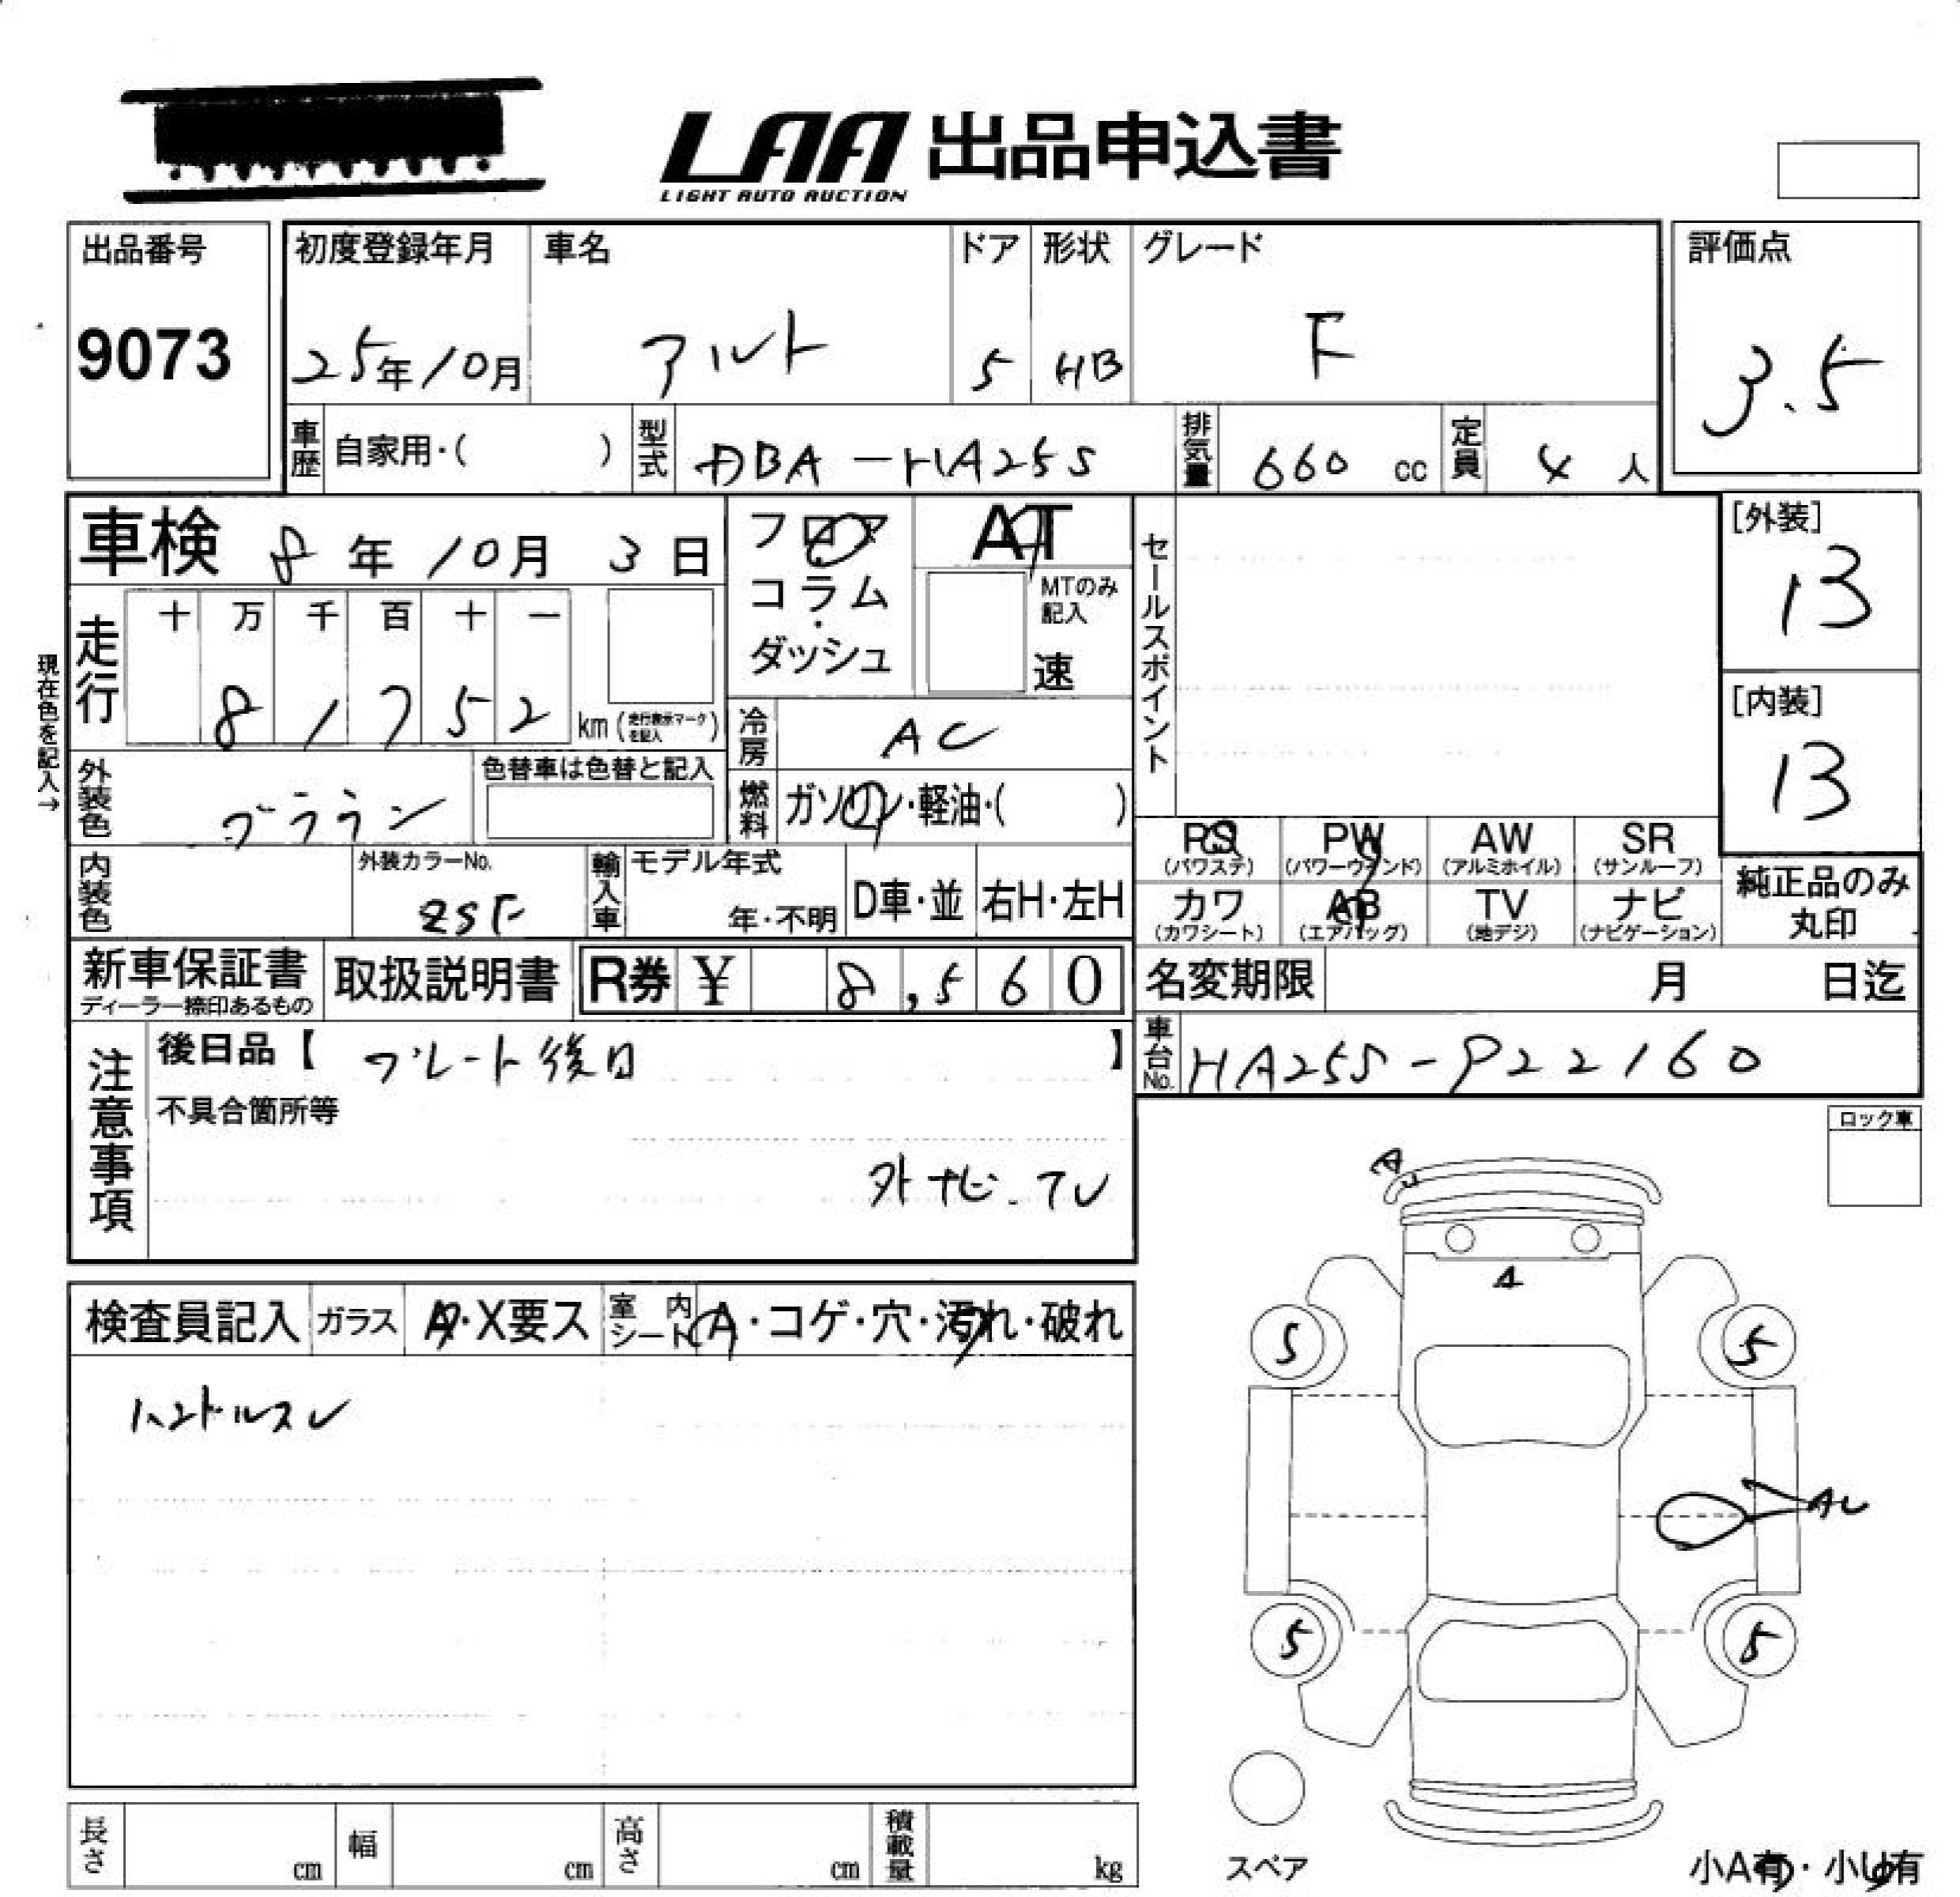 LAA 出品申込書
LIGHT AUTO AUCTION
出品番号
9073
初度登録年月 車名 ドア 形状 グレード
25年10月 アルト 5 HB F
評価点
3.5
車歴 自家用・( ) 型式 DBA-HA25S 排気量 660 cc 定員 4 人
車検 8年10月3日
フロア
コラム
・
ダッシュ
AT
MTのみ
記入
速
セールスポイント
[外装]
13
[内装]
13
現在色を記入→
走行
十 万 千 百 十 一
8 1 7 5 2 km (走行表示マークを記入)
冷房 AC
外装色
色替車は色替と記入
燃料 ガソリン・軽油・( )
内装色
外装カラーNo.
ZSF
輸入車 モデル年式
年・不明 D車・並 右H・左H
RS PW AW SR
(パワステ) (パワーウインド) (アルミホイル) (サンルーフ)
カワ AB TV ナビ
(カワシート) (エアバッグ) (地デジ) (ナビゲーション)
純正品のみ
丸印
新車保証書
ディーラー捺印あるもの
取扱説明書 R券 ¥ 8,560
名変期限 月 日迄
車台No. HA25S-922160
注意事項
後日品【 プレート後日 】
不具合箇所等
外ナビ.TV
ロック車
検査員記入 ガラス A・X要ス 室内シート A・コゲ・穴・汚れ・破れ
ハンドルスレ
A
A
5 5
AU
5 5
スペア
小A有・小U有
長さ cm 幅 cm 高さ cm 積載量 kg